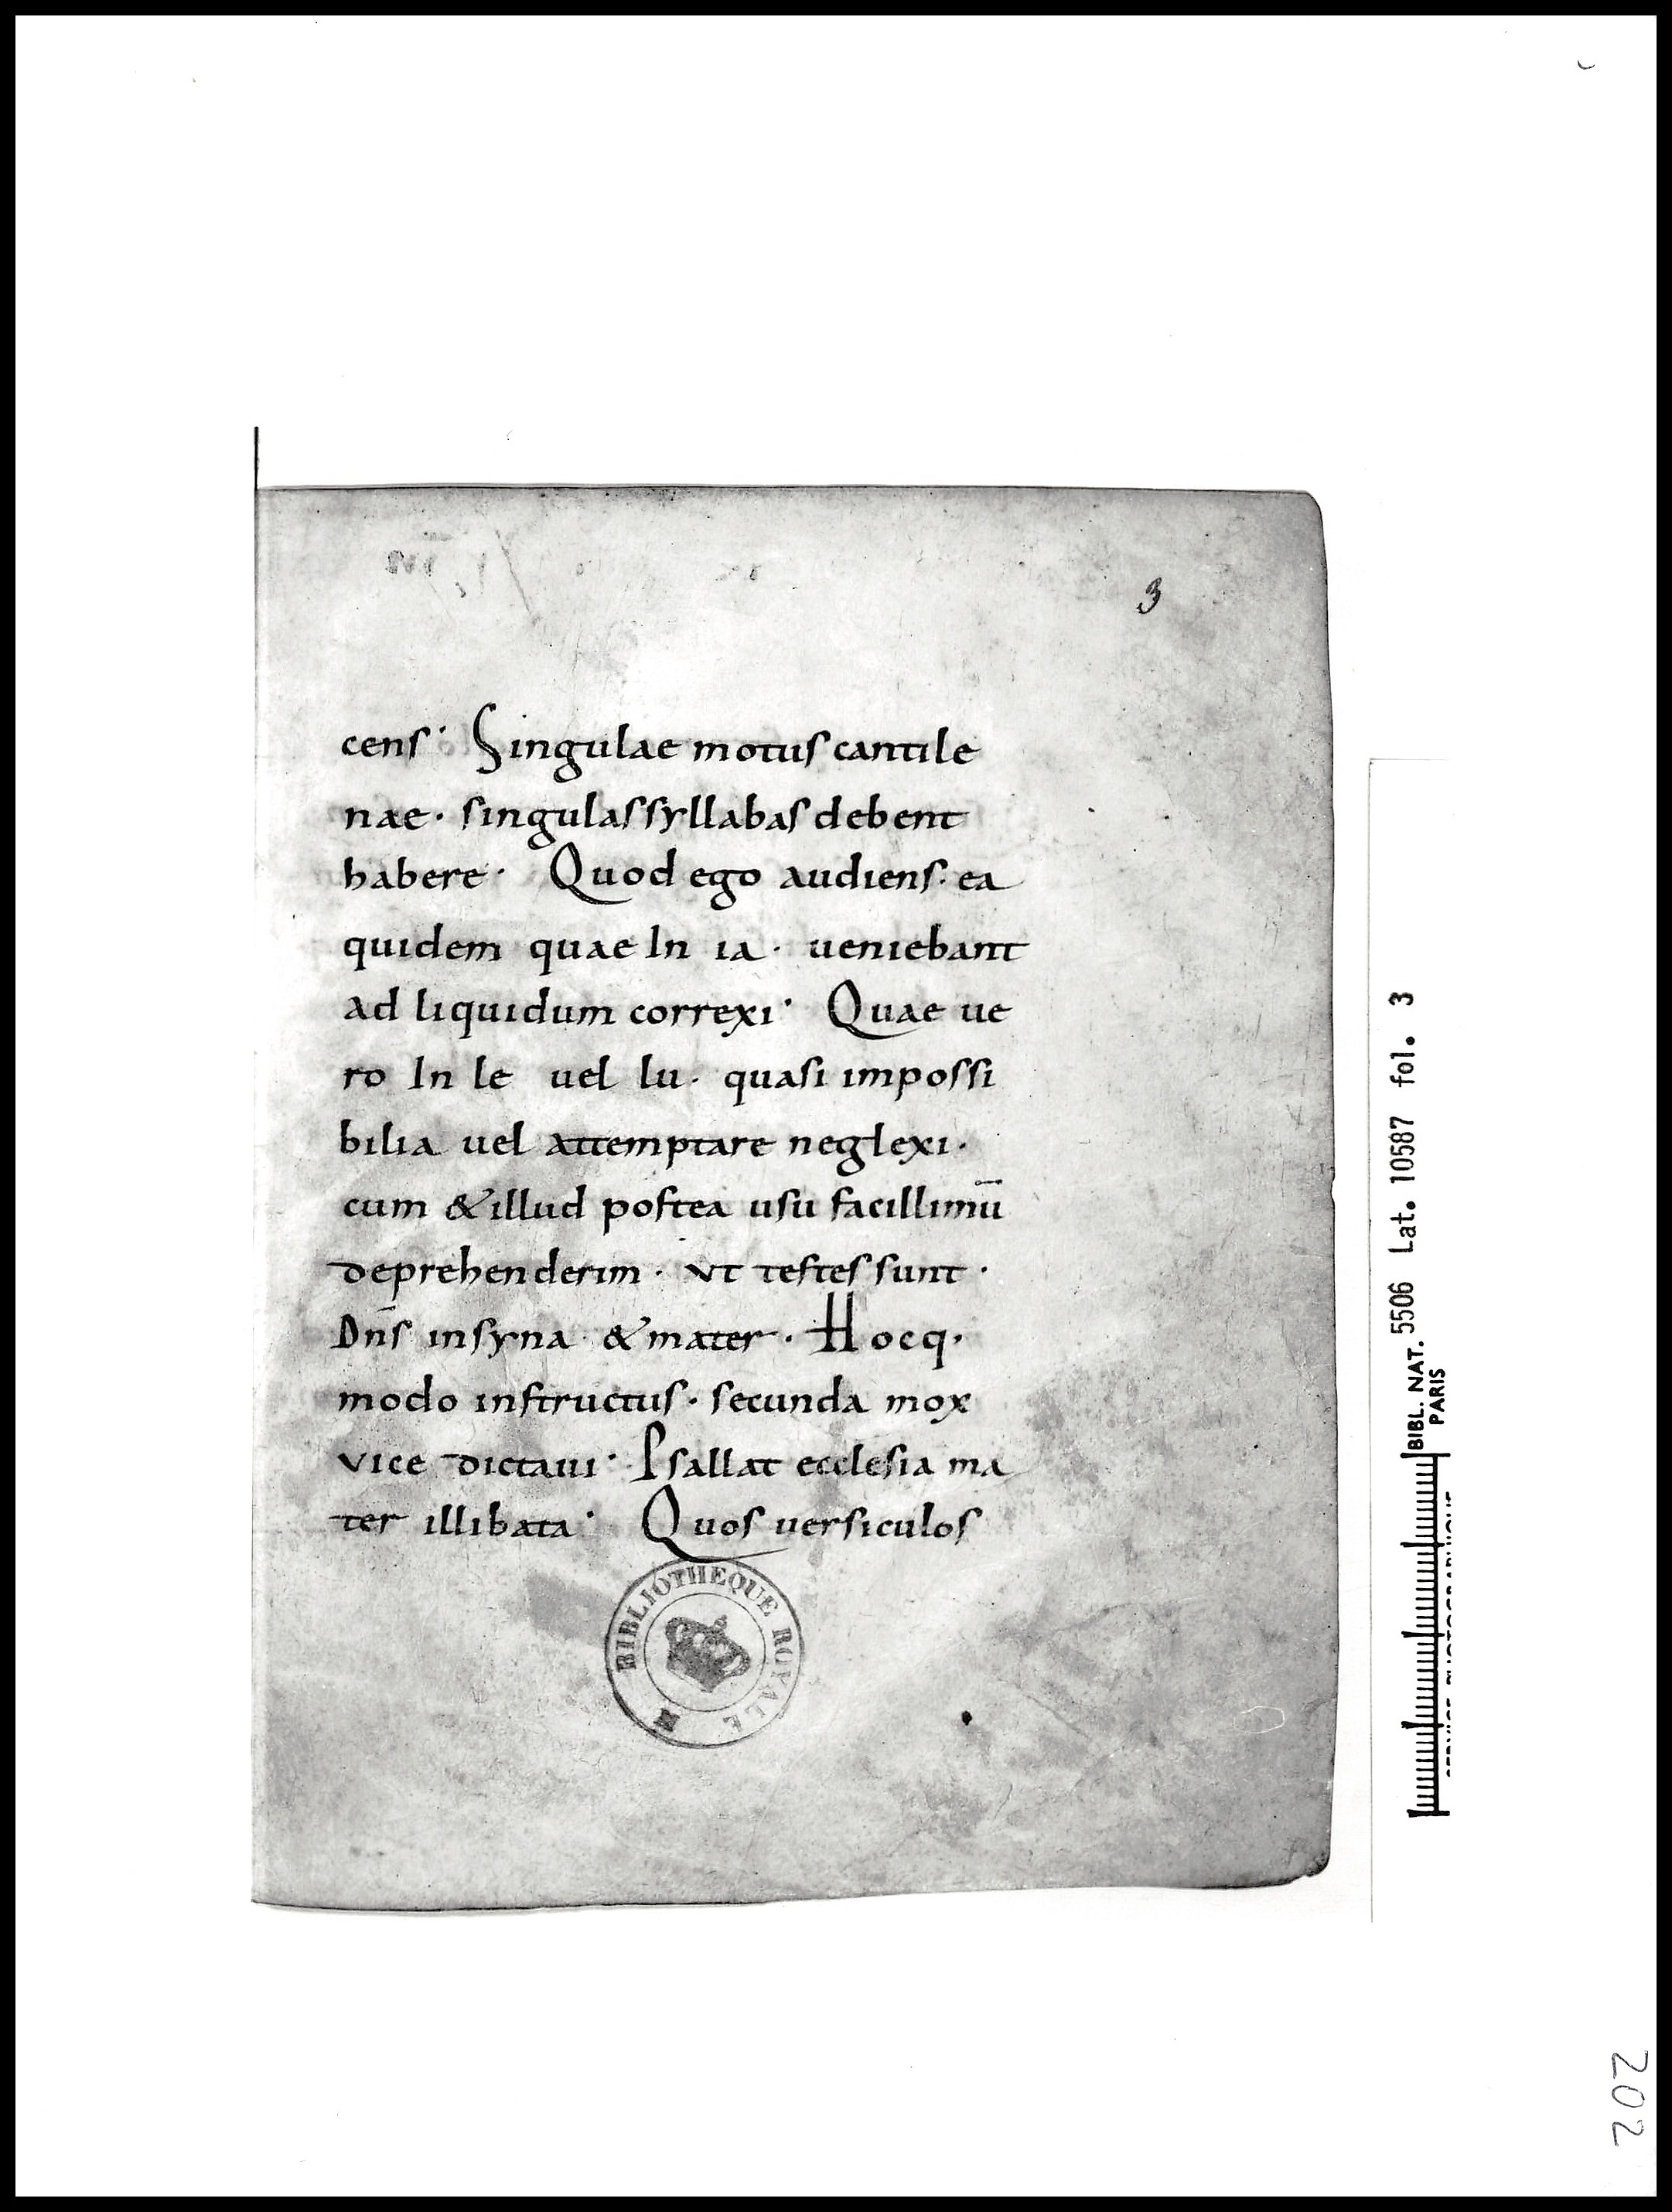 3
cens· Singulae motus cantile
nae· singulas syllabas debent
habere· Quod ego audiens· ea
quidem quae In ia· ueniebant
ad liquidum correxi· Quae ue
ro In le uel lu· quasi impossi
bilia uel attemptare neglexi·
cum & illud postea usu facillimū
deprehenderim· vt testes sunt·
Dn̄s in syna & mater· Hocq·
modo instructus· secunda mox
vice dictaui· Psallat ecclesia ma
ter illibata· Quos uersiculos
BIBLIOTHEQUE ROYALE
BIBL. NAT. 5506 Lat. 10587 fol. 3
PARIS
202